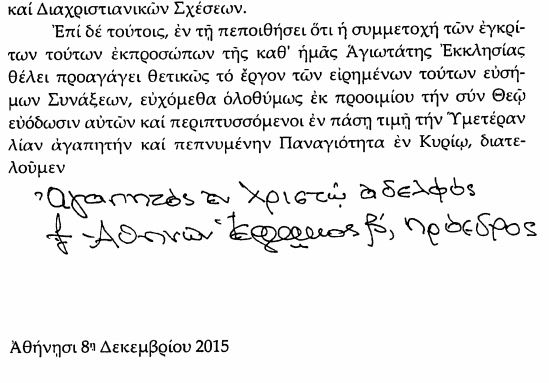 καί Διαχριστιανικῶν Σχέσεων.
Ἐπί δέ τούτοις, ἐν τῇ πεποιθήσει ὅτι ἡ συμμετοχή τῶν ἐγκρί-
των τούτων ἐκπροσώπων τῆς καθ' ἡμᾶς Ἁγιωτάτης Ἐκκλησίας
θέλει προαγάγει θετικῶς τό ἔργον τῶν εἰρημένων τούτων εὐσή-
μων Συνάξεων, εὐχόμεθα ὁλοθύμως ἐκ προοιμίου τήν σύν Θεῷ
εὐόδωσιν αὐτῶν καί περιπτυσσόμενοι ἐν πάσῃ τιμῇ τήν Ὑμετέραν
λίαν ἀγαπητήν καί πεπνυμένην Παναγιότητα ἐν Κυρίῳ, διατε-
λοῦμεν
Ἀγαπητός ἐν Χριστῷ ἀδελφός
† Ἀθηνῶν Ἱερώνυμος β', πρόεδρος
Ἀθήνῃσι 8ῃ Δεκεμβρίου 2015